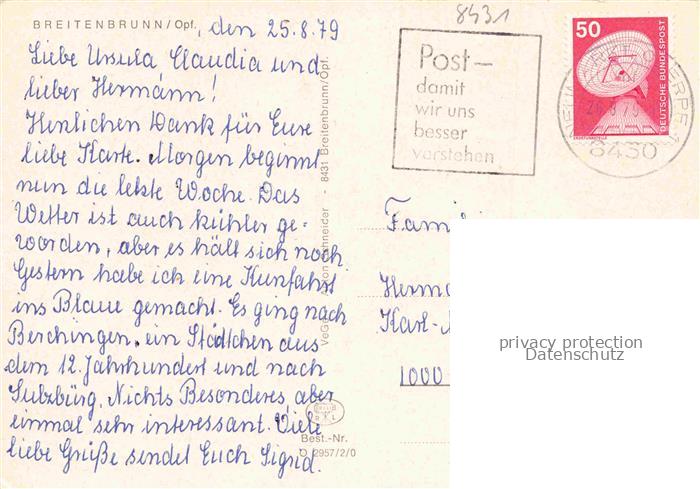 BREITENBRUNN/Opf., den 25.8.79
Liebe Ursula Claudia und
lieber Hermann!
Herzlichen Dank für Eure
liebe Karte. Morgen beginnt
nun die letzte Woche. Das
Wetter ist auch kühler ge-
worden, aber es hält sich noch.
Gestern habe ich eine Kurzfahrt
ins Blaue gemacht. Es ging nach
Berchingen, ein Städtchen aus
dem 12. Jahrhundert und nach
Sulzbürg. Nichts Besonderes, aber
einmal sehr interessant. Viele
liebe Grüße sendet Euch Sigrid.
8431 Breitenbrunn/Opf.
Best.-Nr.
O 2957/2/0
8431
Post-
damit
wir uns
besser
verstehen
50
DEUTSCHE BUNDESPOST
8430
Fami
Herma
Karl-M
1000
privacy protection
Datenschutz